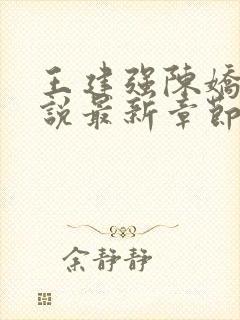 王建强陳嬌
說最新章節
余靜靜